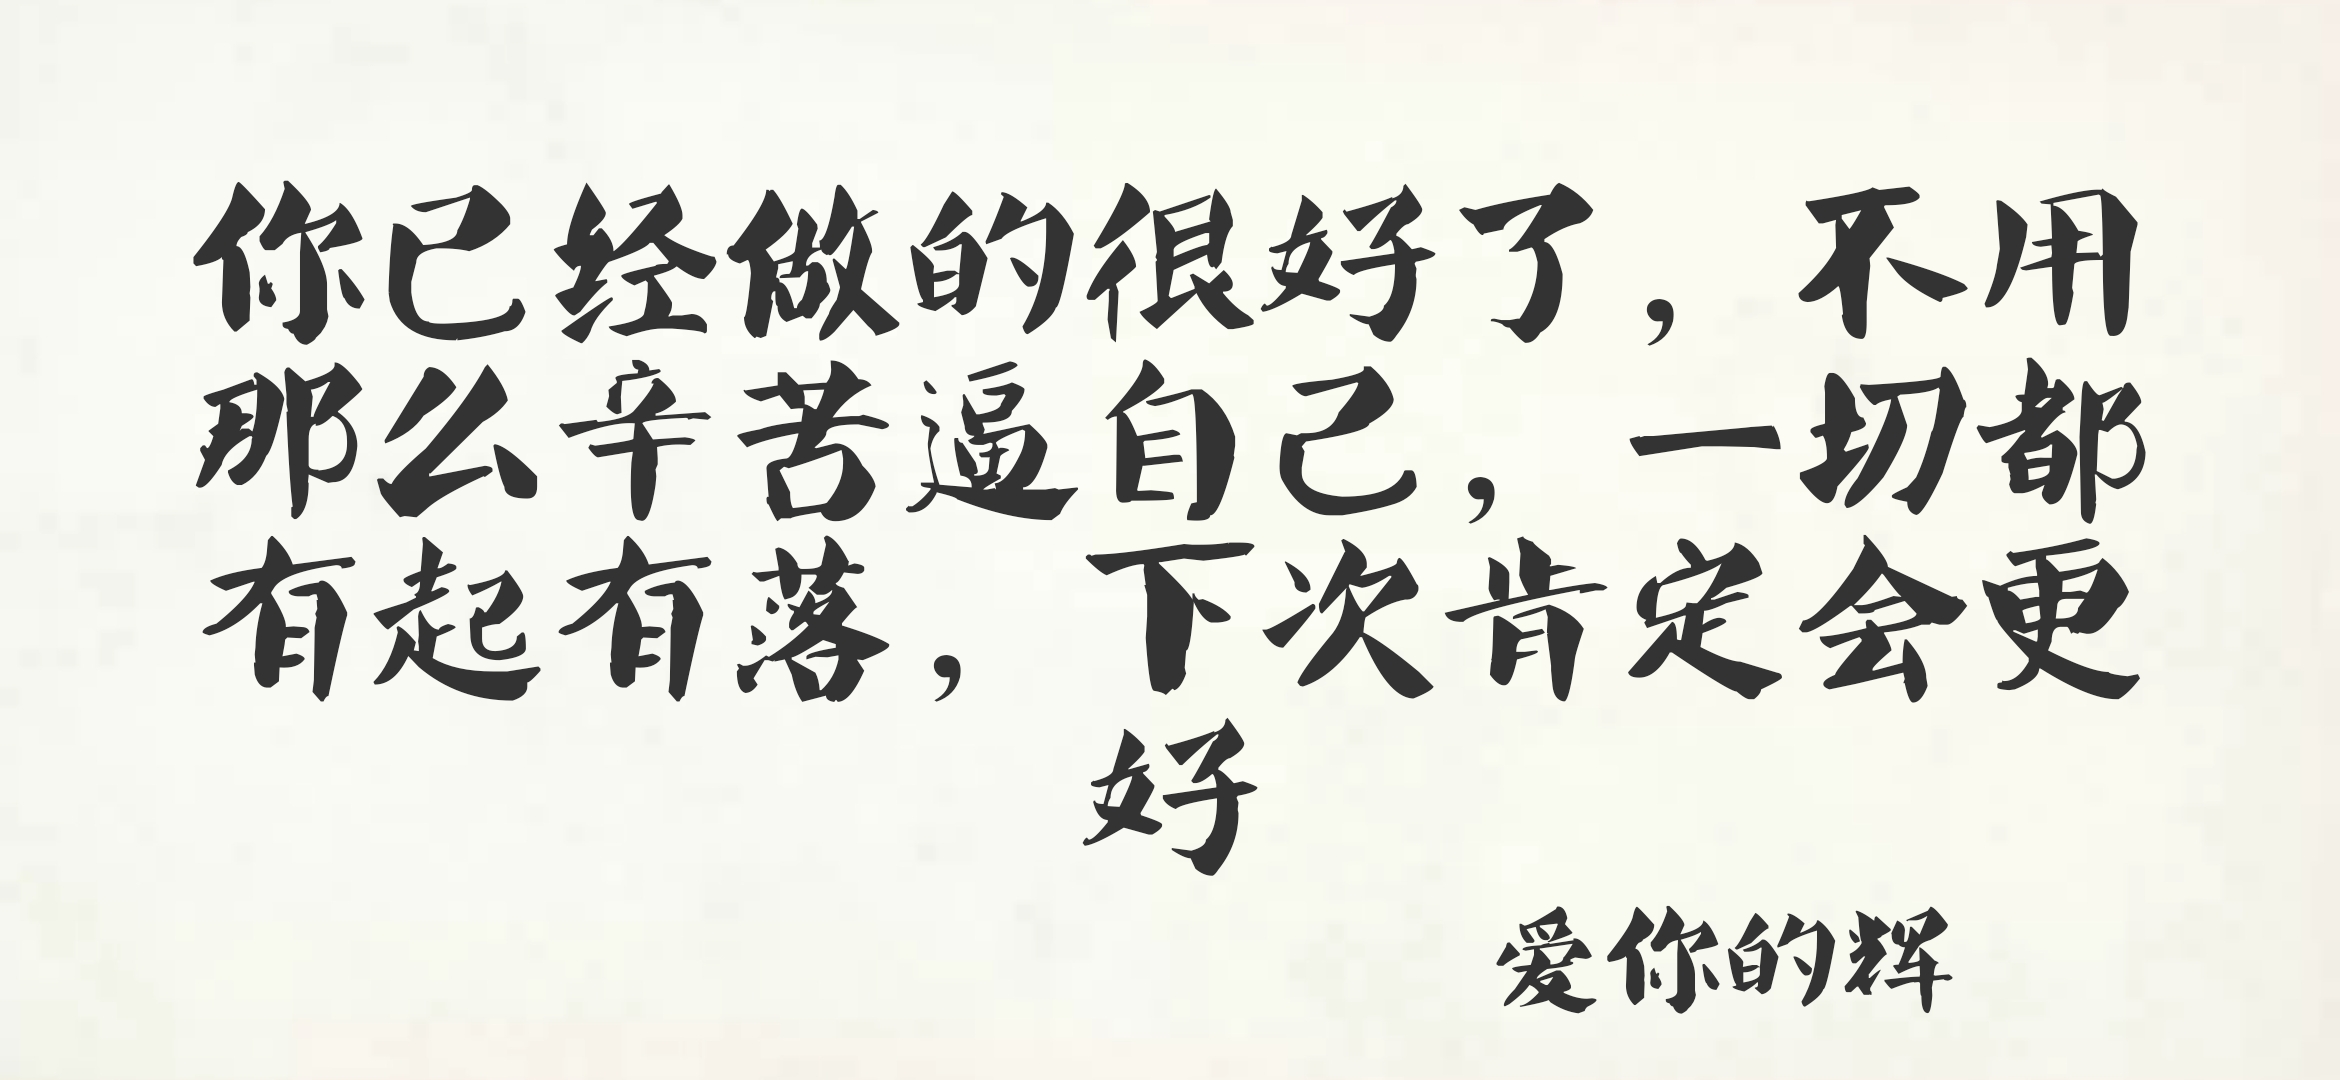 你已经做的很好了，不用
那么辛苦逼自己，一切都
有起有落，下次肯定会更
好
爱你的辉